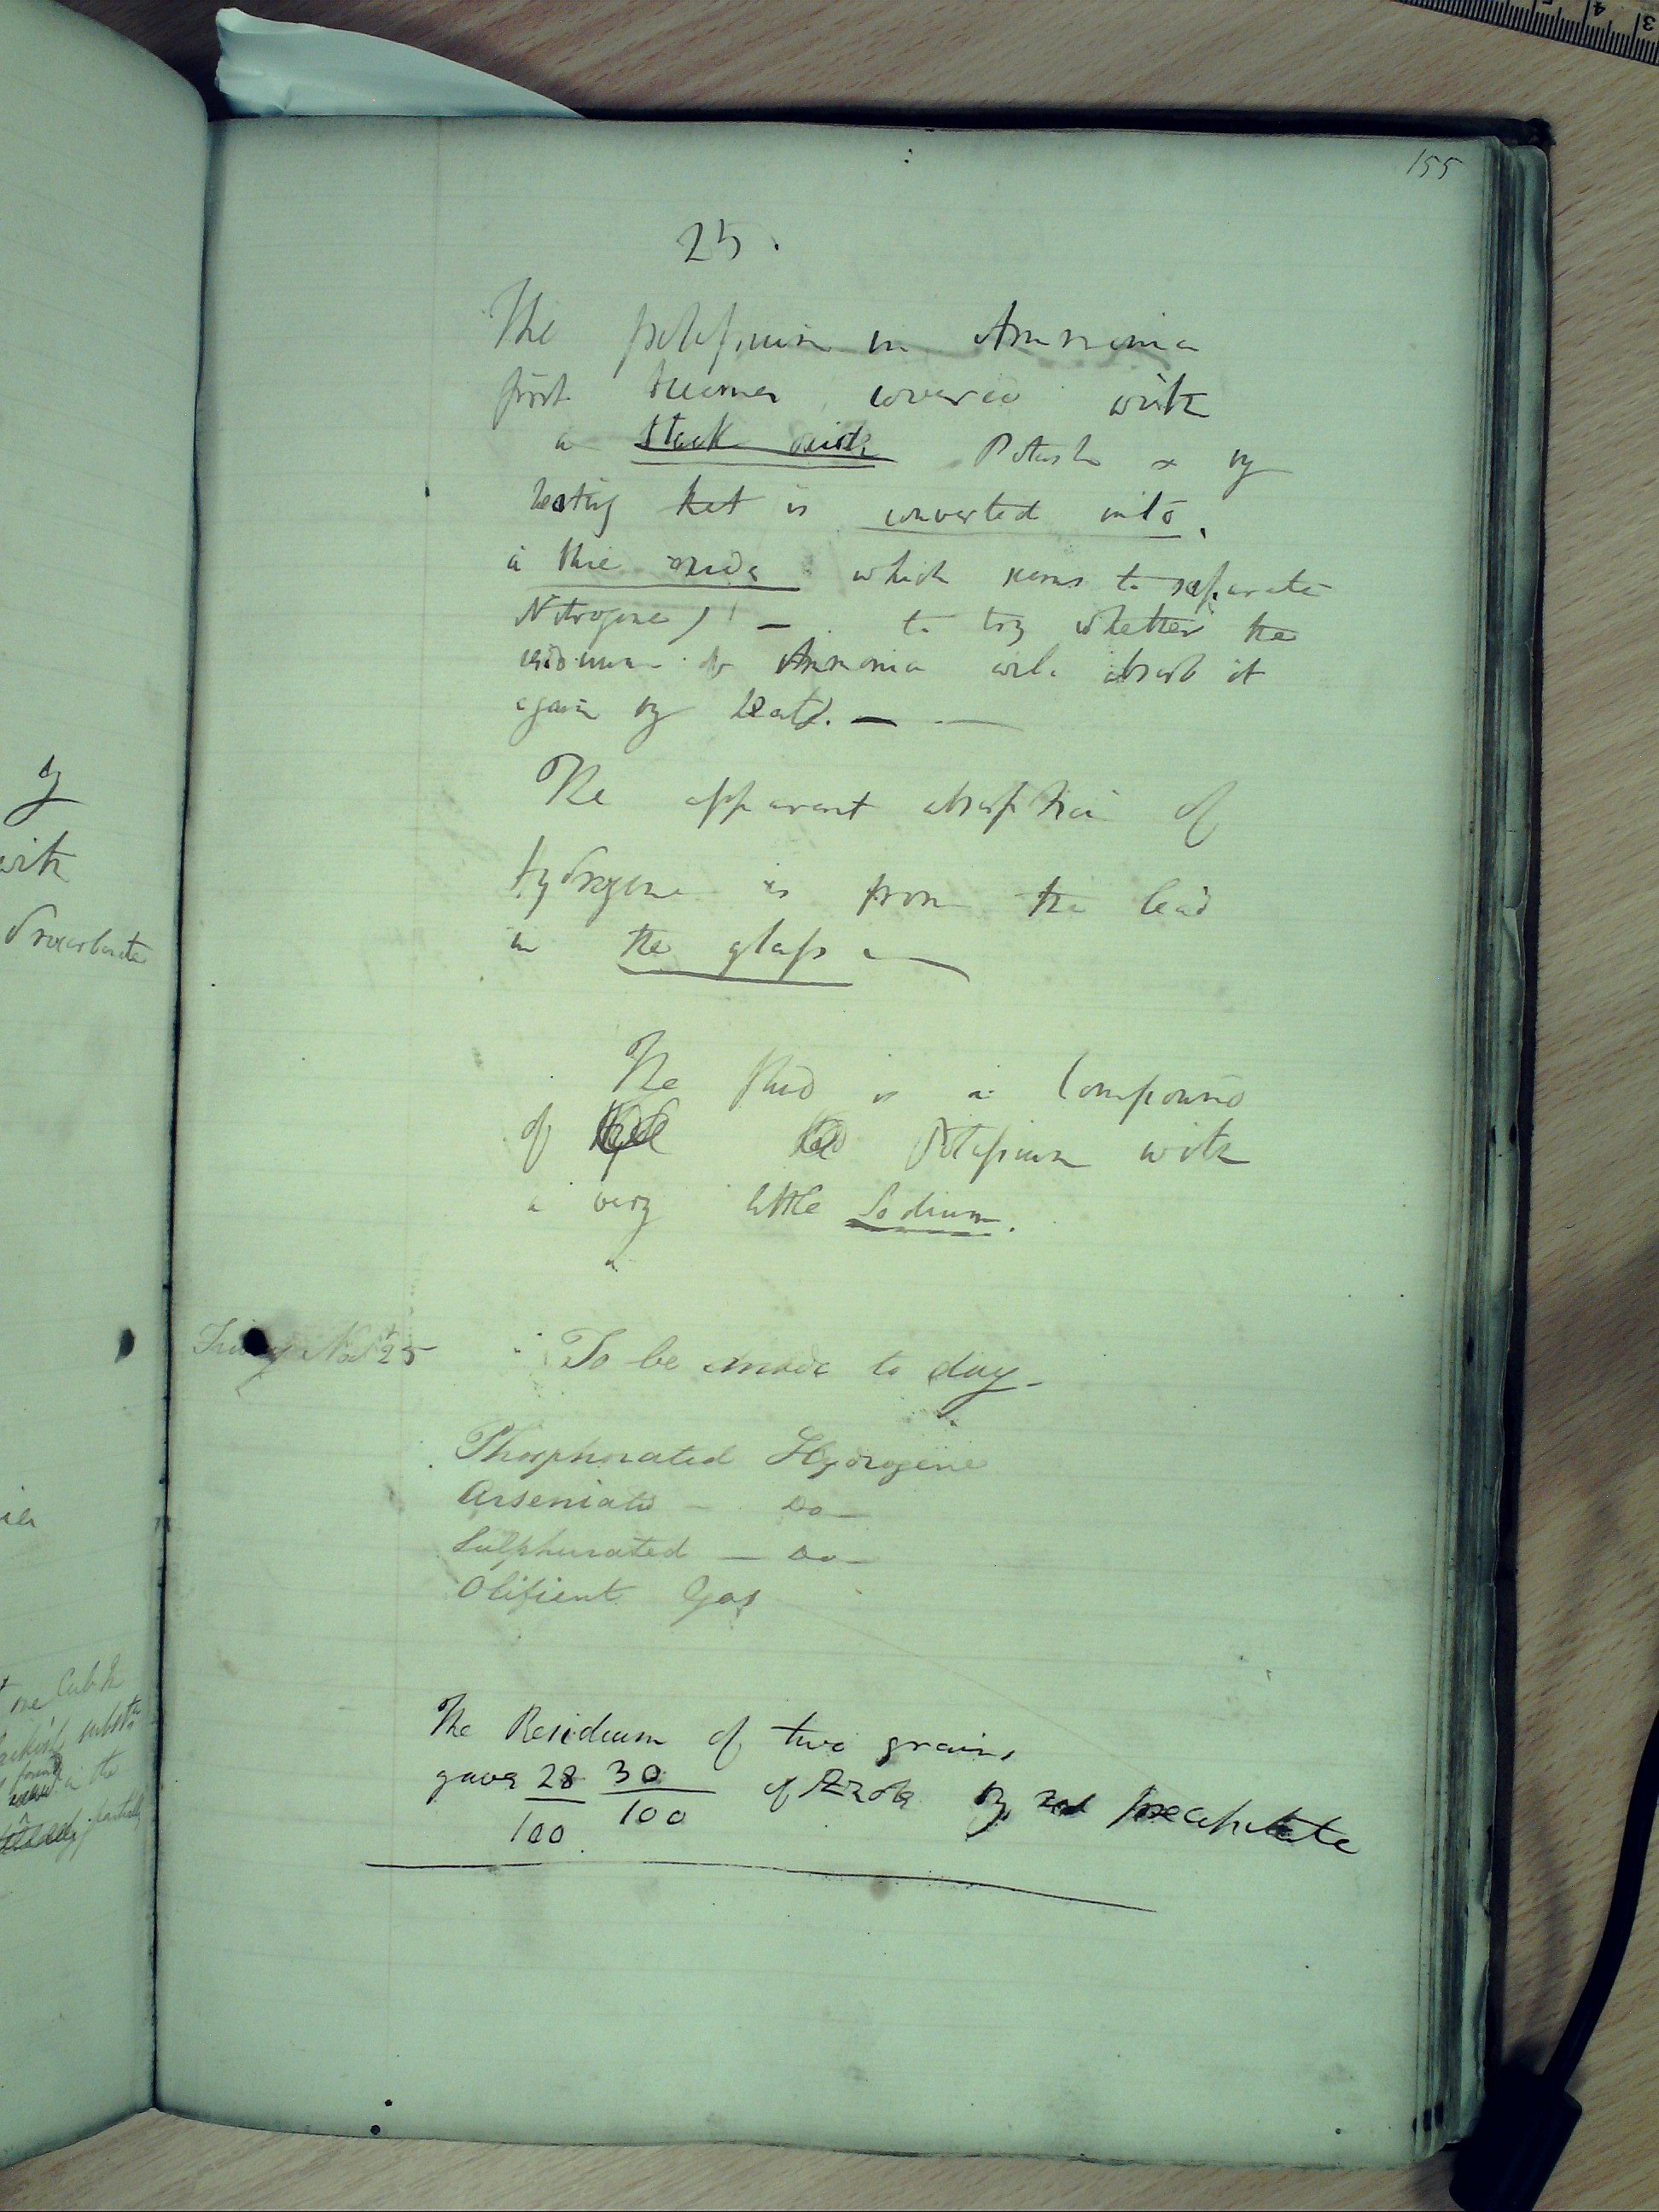 155
25.
The potassium in Ammonia
first becomes covered with
a black oxide Potash & by
heating het is converted into
a blue oxide which seems to separate
Nitrogene) — to try whether the
residuum of Ammonia will absorb it
again by heat. — —
The apparent absorption of
hydrogene is from the lead
in the glass —
The fluid is a Compound
of Potassium with
a very little Sodium.
Friday Novr 25
To be made to day —
Phosphorated Hydrogene
Arseniated — Do —
Sulphurated — Do —
Olifient Gas
The Residuum of two grains
gave 28/100 30/100 of Azote by red precipitate
y
with
drocarbonate
one Cub In
substce
found
in the
partially